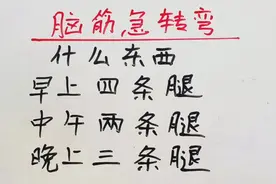 脑筋急转弯
什么东西
早上四条腿
中午两条腿
晚上三条腿